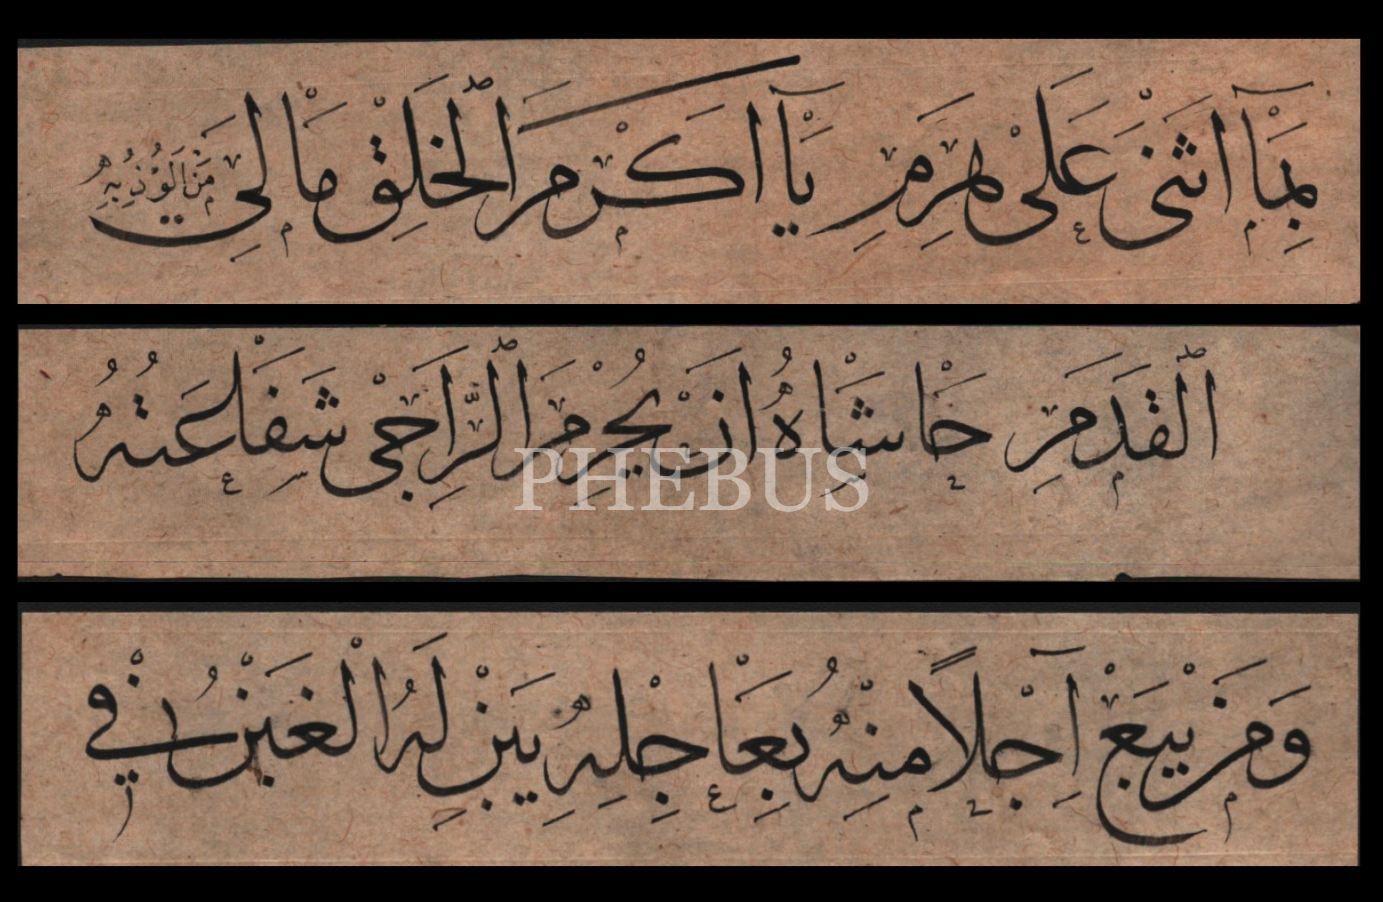 بِمَا اَثْنٰى عَلٰى هَرِمِ يَا اَكْرَمَ الْخَلْقِ مَالِي مَنْ اَلُوذُ بِهِ
الْقَدَمِ حَاشَاهُ اَنْ يُحْرِمَ الرَّاجِي شَفَاعَتَهُ
PHEBUS
وَمَنْ يَبِعْ آجِلًا مِنْهُ بِعَاجِلِهِ يَبِنْ لَهُ الْغَبْنُ فِي